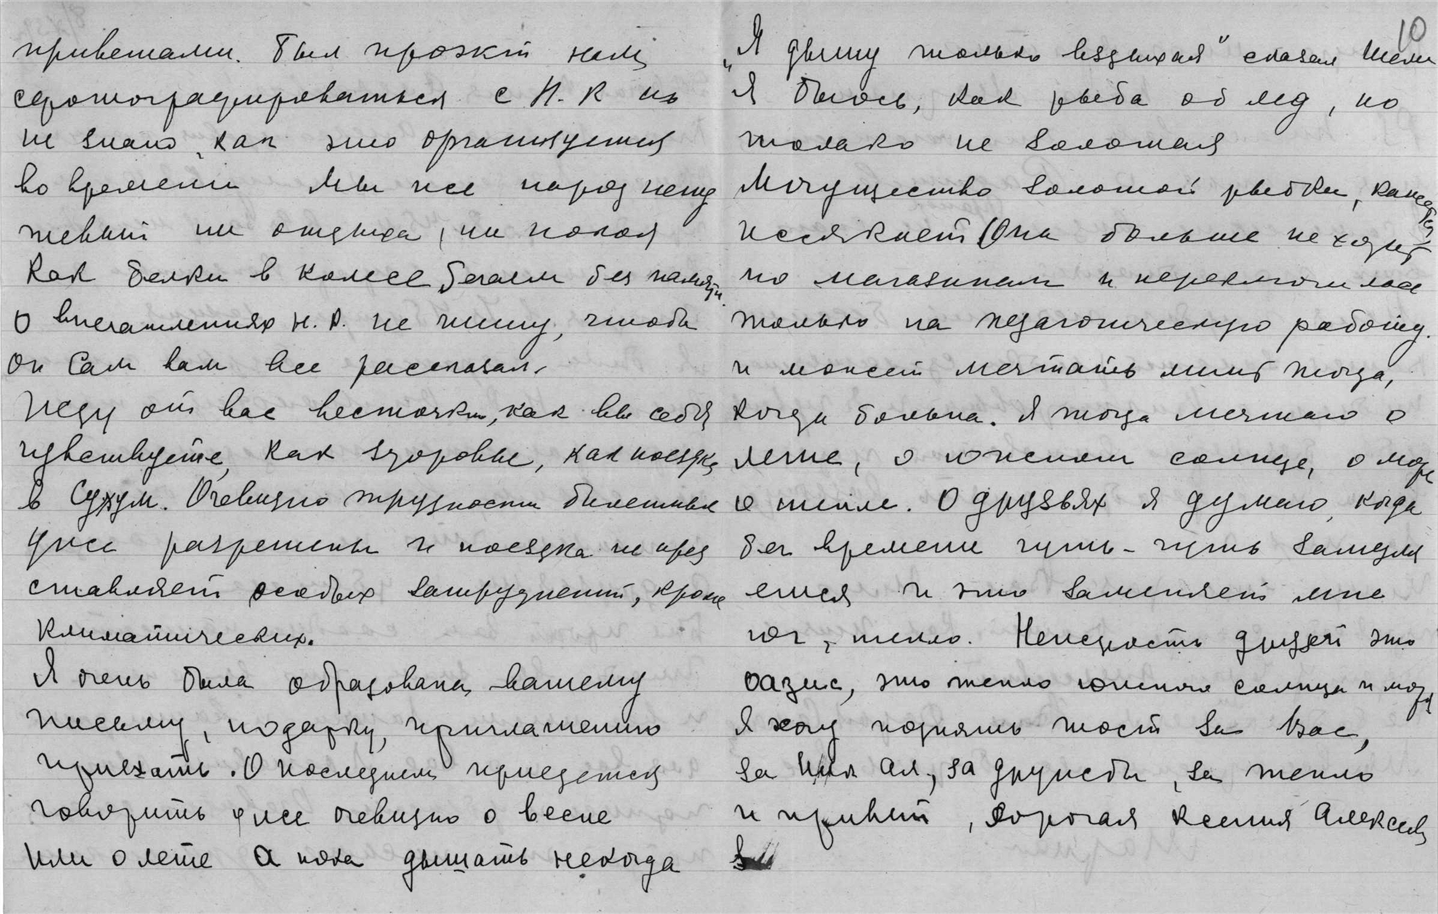 приветами. Был проэкт нам
сфотографироваться с Н. К. но
не знаю, как это организуется
во времени Мы же народ неу
живый ни отдыха, ни покоя
Как белки в колесе бегаем без памяти.
О впечатлениях Н. К. не пишу, чтобы
он сам вам все рассказал.
Жду от вас весточки, как вы себя
чувствуете, как здоровье, как поездка
в Сухум. Очевидно трудности билетные
уже разрешены и поездка не пред
ставляет особых затруднений, кроме
климатических.
Я очень была обрадована вашему
письму, подарку, приглашению
приехать. О последнем придется
говорить уже очевидно о весне
или о лете а пока дышать некогда
10
„Я дышу только вздыхая" сказал Шели
Я бьюсь, как рыба об лед, но
только не золотая
Могущество золотой рыбки, кажется,
иссякнет (Она больше не ходит
по магазинам и переключилась
только на педагогическую работу.
и может мечтать лишь тогда,
когда больна. Я тогда мечтаю о
лете, о южном солнце, о море
о тепле. О друзьях я думаю, когда
бег времени чуть-чуть замедля
ется и это заменяет мне
юг, тепло. Нежность друзей это
оазис, это тепло южного солнца и моря
Я хочу поднять тост за Вас,
за Ник Ал, за дружбу, за тепло
и привет, дорогая Ксения Алексеев